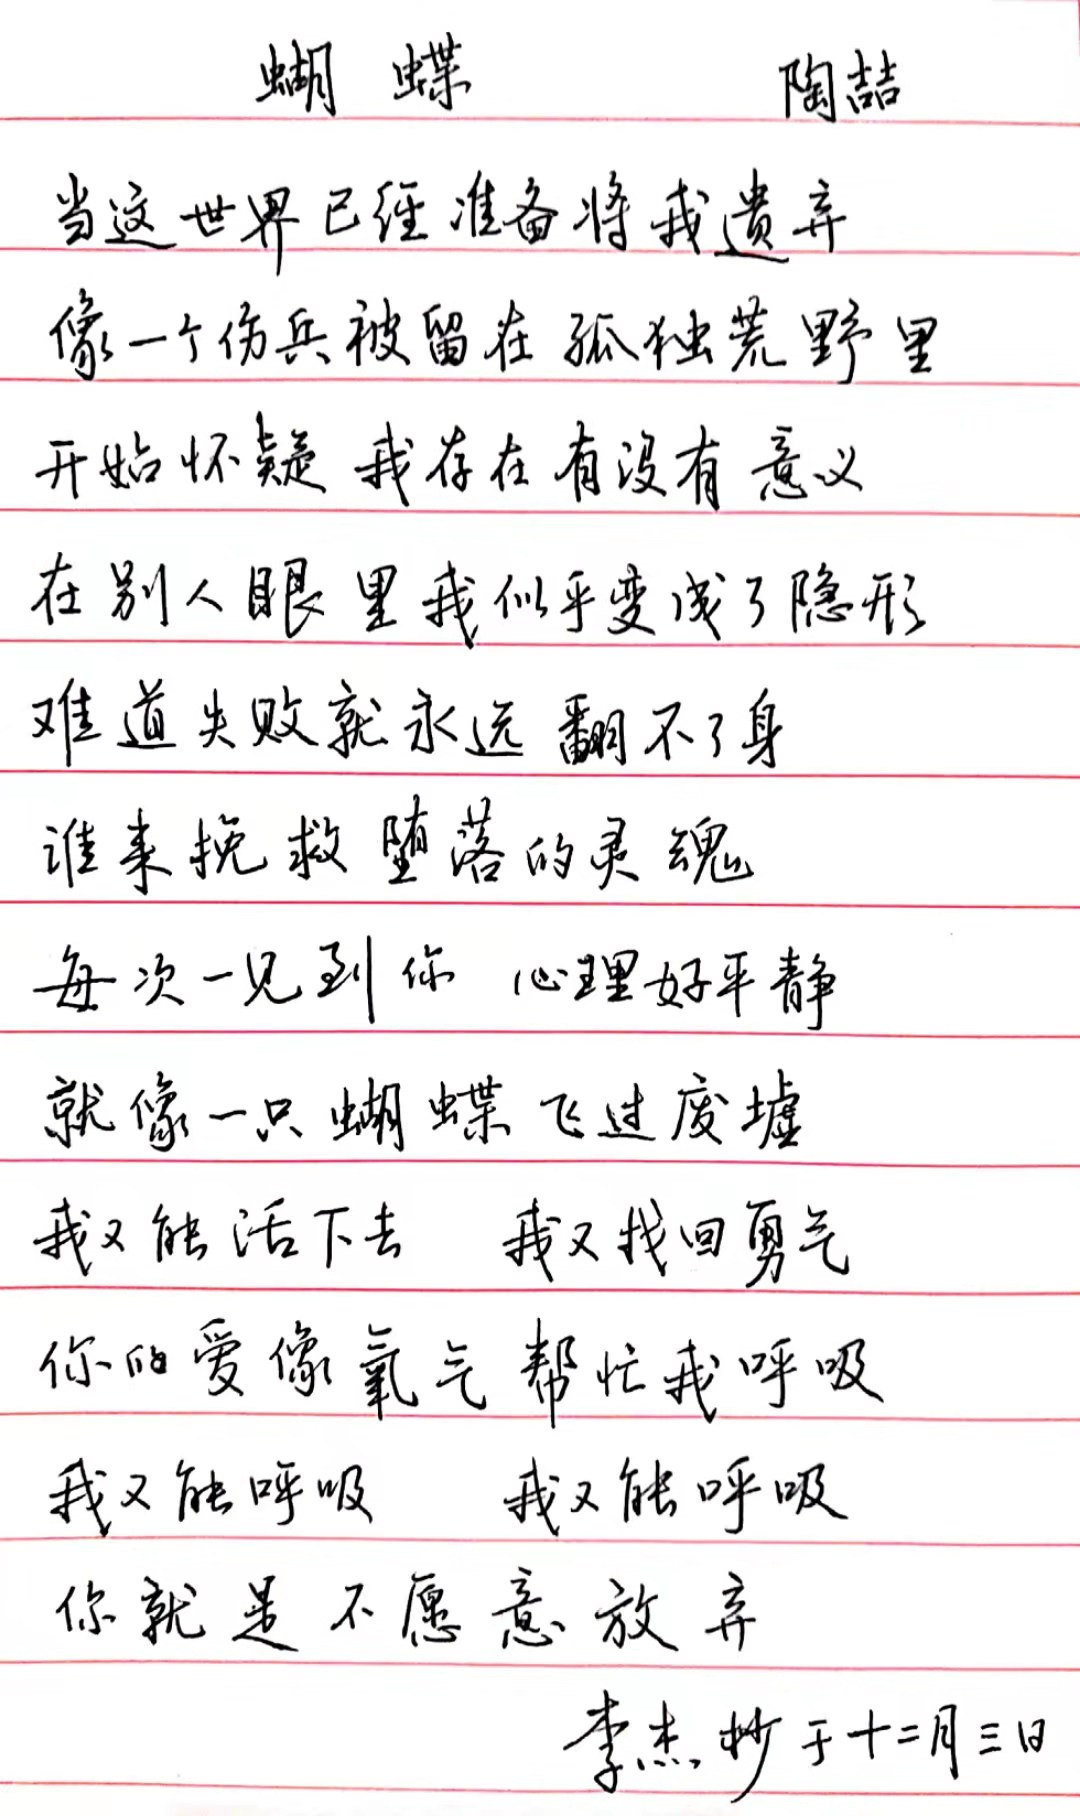 蝴蝶 陶喆
当这世界已经准备将我遗弃
像一个伤兵被留在孤独荒野里
开始怀疑 我存在有没有意义
在别人眼里我似乎变成了隐形
难道失败就永远翻不了身
谁来挽救堕落的灵魂
每次一见到你 心理好平静
就像一只蝴蝶飞过废墟
我又能活下去 我又找回勇气
你的爱像氧气帮忙我呼吸
我又能呼吸 我又能呼吸
你就是不愿意放弃
李杰抄于十二月三日